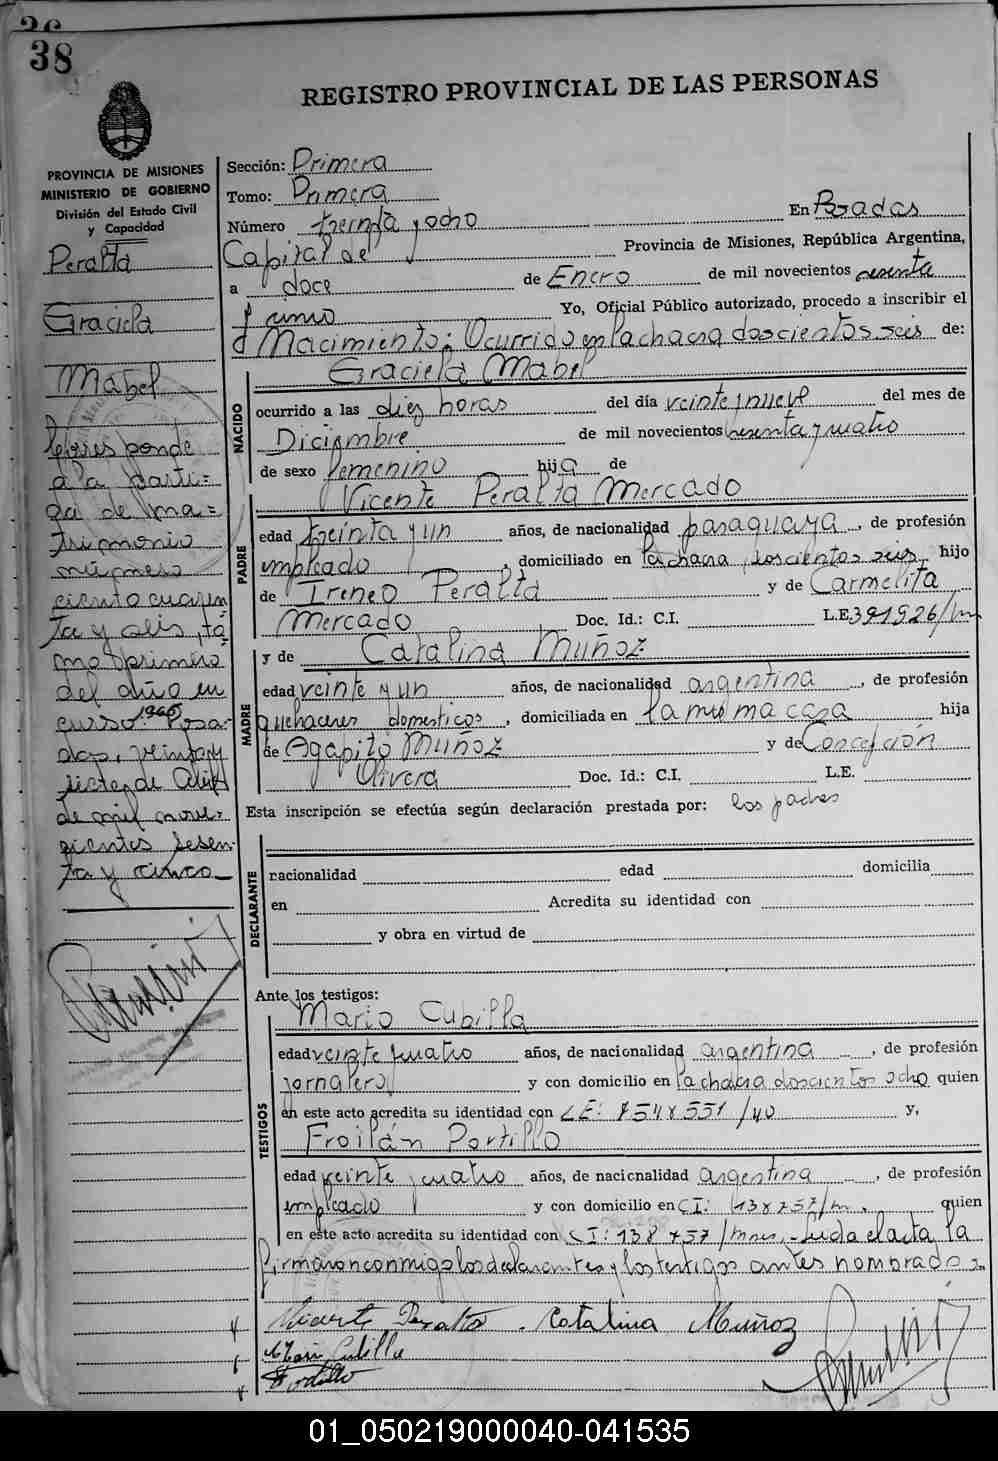 38
REGISTRO PROVINCIAL DE LAS PERSONAS
PROVINCIA DE MISIONES
MINISTERIO DE GOBIERNO
División del Estado Civil
y Capacidad
Peralta
Graciela
Mabel
corresponde
a la parti=
da de ma=
trimonio
número
ciento cuaren
ta y seis, to
mo primero
del año en
curso 1965. Posa-
das, veinte y
siete de Abril
de mil nove-
cientos sesen
ta y cinco
Sección: Primera
Tomo: Primera
Número treinta y ocho En Posadas
Capital de Provincia de Misiones, República Argentina,
a doce de Enero de mil novecientos sesenta
y Yo, Oficial Público autorizado, procedo a inscribir el
Nacimiento: Ocurrido en la chacra doscientos seis de:
Graciela Mabel
NACIDO
ocurrido a las diez horas del día veinte y nueve del mes de
Diciembre de mil novecientos sesenta y cuatro
de sexo femenino hija de
Vicente Peralta Mercado
PADRE
edad treinta y un años, de nacionalidad paraguaya, de profesión
empleado, domiciliado en la chacra doscientos seis, hijo
de Ireneo Peralta y de Carmelita
Mercado Doc. Id.: C.I. L.E. 391926/
y de Catalina Muñoz
MADRE
edad veinte y un años, de nacionalidad argentina, de profesión
quehaceres domesticos, domiciliada en la misma casa hija
de Agapito Muñoz y de Concepción
Olivera Doc. Id.: C.I. L.E.
Esta inscripción se efectúa según declaración prestada por: los padres
DECLARANTE
nacionalidad edad domicilia
en Acredita su identidad con
y obra en virtud de
Ante los testigos:
Mario Cubilla
TESTIGOS
edad veinte y cuatro años, de nacionalidad argentina, de profesión
jornalero y con domicilio en la chacra doscientos ocho quien
en este acto acredita su identidad con LE: 7548551/40 y,
Froilán Portillo
edad veinte y cuatro años, de nacionalidad argentina, de profesión
empleado y con domicilio en CI: 138757/m. quien
en este acto acredita su identidad con CI: 138757/mnes. Leida el acta la
firmaron conmigo los declarantes y los testigos antes nombrados
Vicente Peralta. Catalina Muñoz
Mario Cubilla
Portillo
01_050219000040-041535